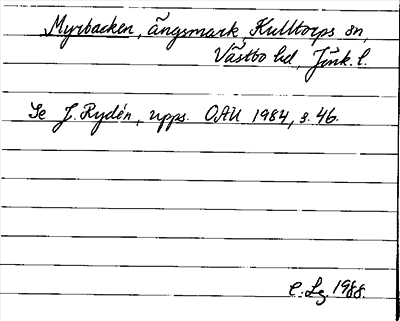 Myrbacken, ängsmark, Kulltorps sn,
Västbo hd, Jönk. l.
Se J. Rydén, upps. OAU 1984, s. 46.
C. Lg. 1988.